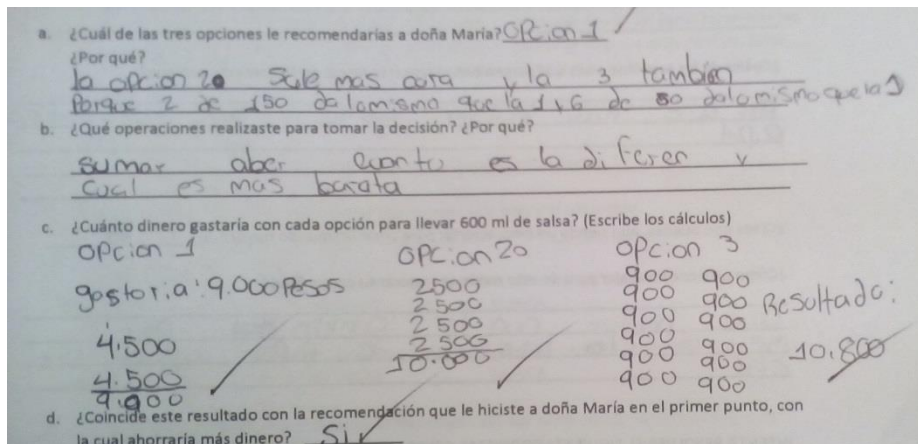 a. ¿Cuál de las tres opciones le recomendarías a doña María? OPcion 1
¿Por qué?
la opcion 2 Sale mas cara y la 3 tambien
Porque 2 de 150 da lomismo que la 1 y 6 de 50 dalomismo que la 1
b. ¿Qué operaciones realizaste para tomar la decisión? ¿Por qué?
sumar aber cuanto es la diferen y
cual es mas barata
c. ¿Cuánto dinero gastaría con cada opción para llevar 600 ml de salsa? (Escribe los cálculos)
OPcion 1 OPcion 2 OPcion 3
gastaria: 9.000 Pesos 2500 900 900
2500 900 900 Resultado:
2500 900 900
4.500 2500 900 900 10.800
4.500 10.000 900 900
9.000 900 900
d. ¿Coincide este resultado con la recomendación que le hiciste a doña María en el primer punto, con
la cual ahorraría más dinero? Si